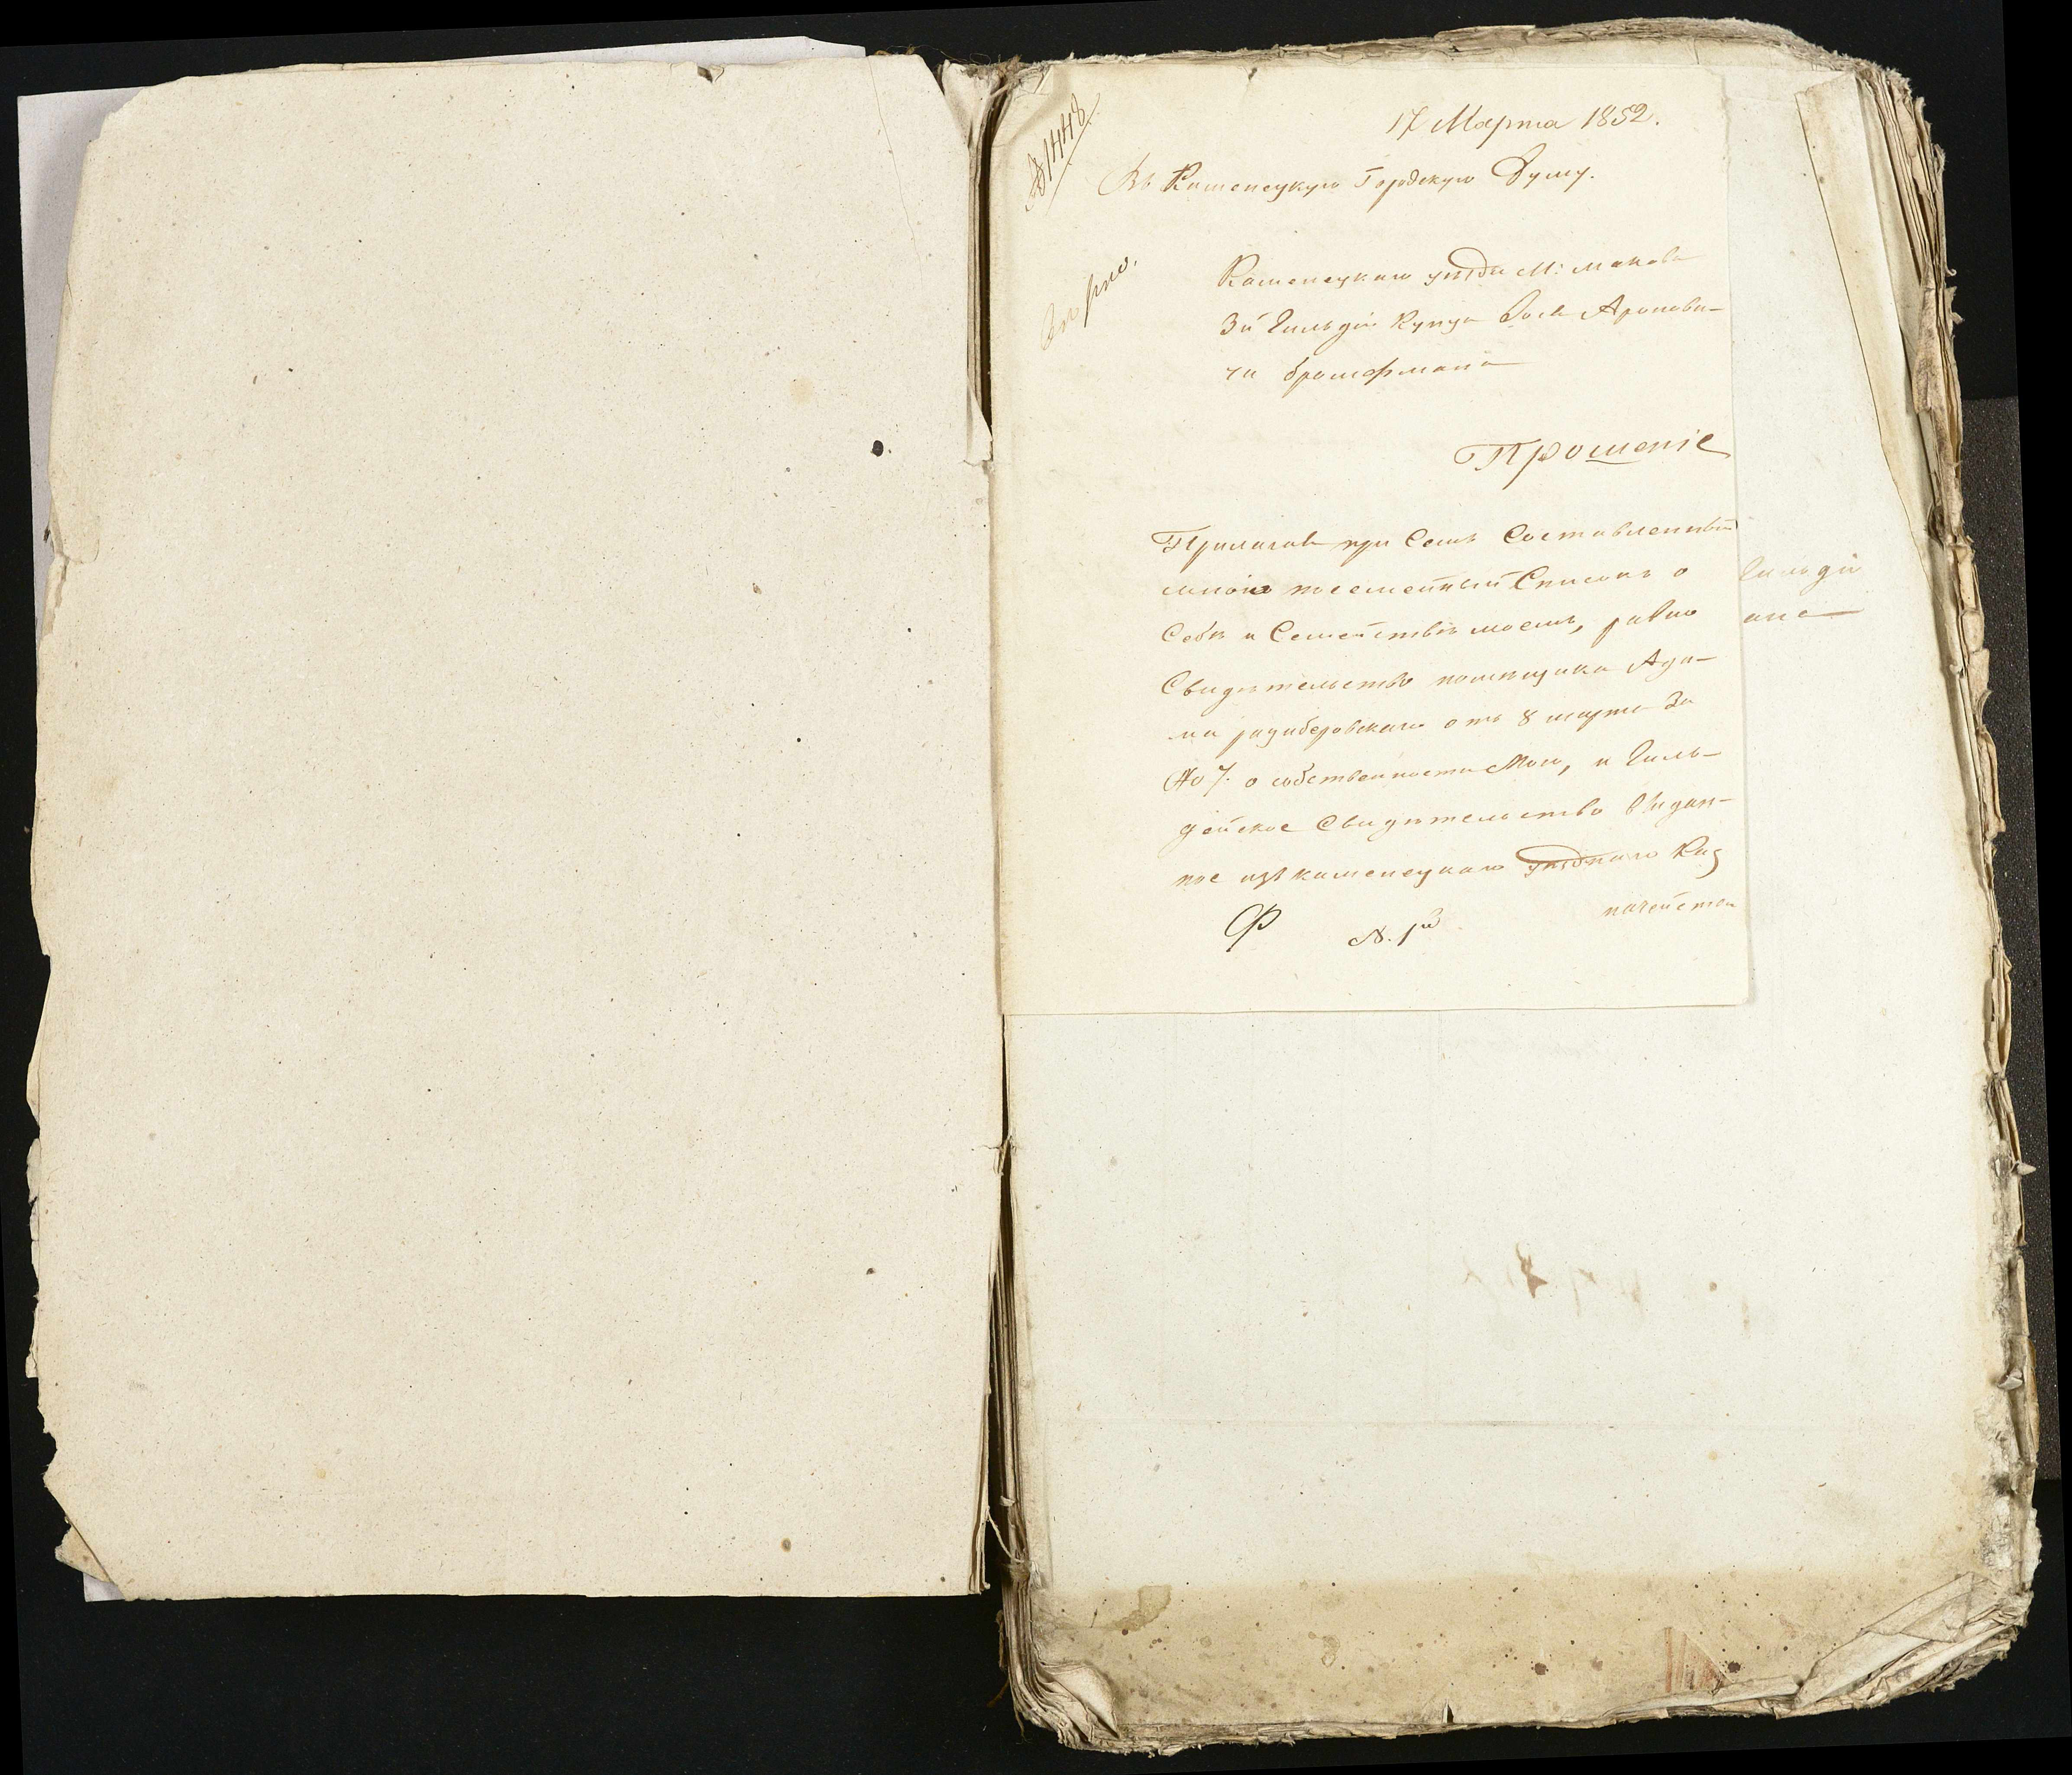 № 1448
17 Марта 1852.
Въ Каменецкую Городскую Думу.
Каменецкаго уѣзда М: Макова
3й Гильдіи Купца Іося Аронови-
ча Брамермана
Прошеніе
Прилагая при семъ Составленный
мною посемейный Списокъ о
Себѣ и Семействѣ моемъ, равно
Свидѣтельство помещика Ада-
ма от 8 марта За
No 7. о собственности Мои, и Гиль-
дейское Свидѣтельство Выдан-
ное изъ каменецкаго уѣзднаго Каз
начейства
Гильдіи
ана